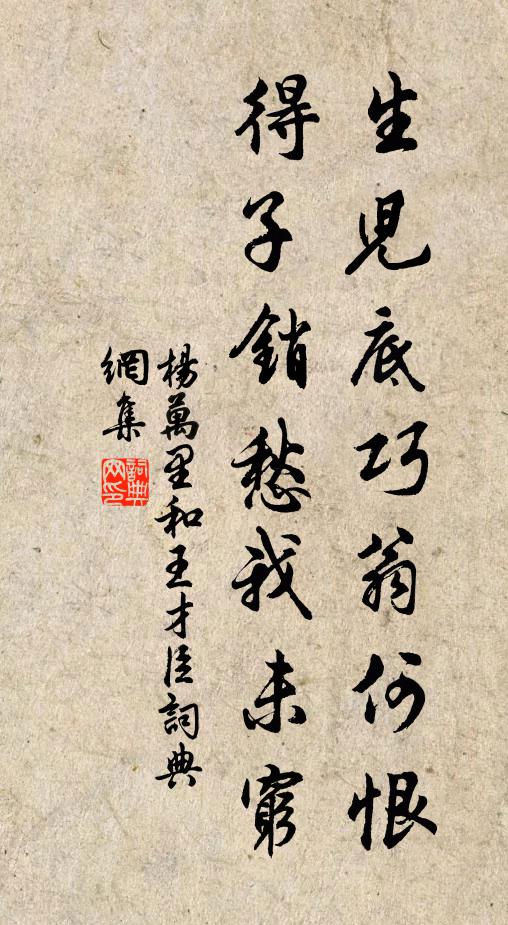 生兒底巧翁何恨
得子銷愁我未窮
楊萬里和王才臣詞典
網集
詞典網印